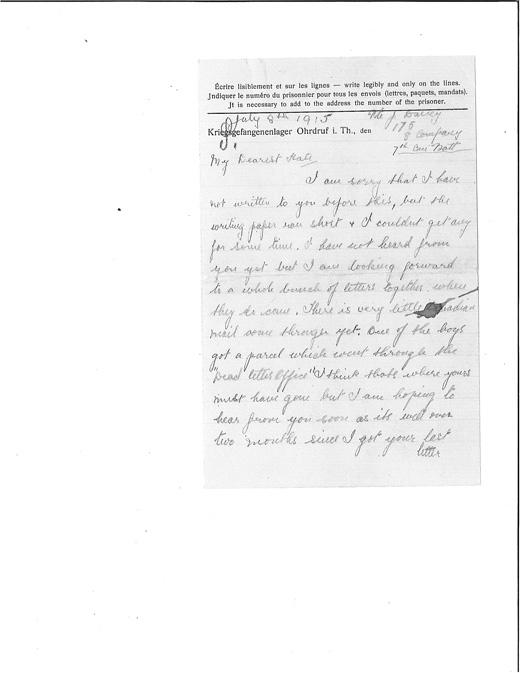 Écrire lisiblement et sur les lignes — write legibly and only on the lines.
Jndiquer le numéro du prisonnier pour tous les envois (lettres, paquets, mandats).
Jt is necessary to add to the address the number of the prisoner.
July 8th 1915 Pte J. Davey
Kriegsgefangenenlager Ohrdruf i. Th., den 175
Company
7th Can Batt
My Dearest Kate
I am sorry that I have
not written to you before this, but the
writing paper ran short & I couldnt get any
for some time. I have not heard from
you yet but I am looking forward
to a whole bunch of letters together when
they do come. There is very little Canadian
mail come through yet. One of the boys
got a parcel which went through the
"Dead Letter Office" I think thats where yours
must have gone but I am hoping to
hear from you soon as its well over
two months since I got your last
letter